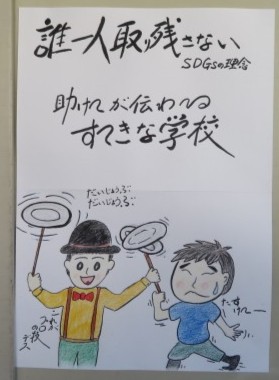 誰一人取り残さない
SDGsの理念
助けてが伝わる
すてきな学校
だいじょうぶ
だいじょうぶ
たすけてー
これが
プロの技
デス